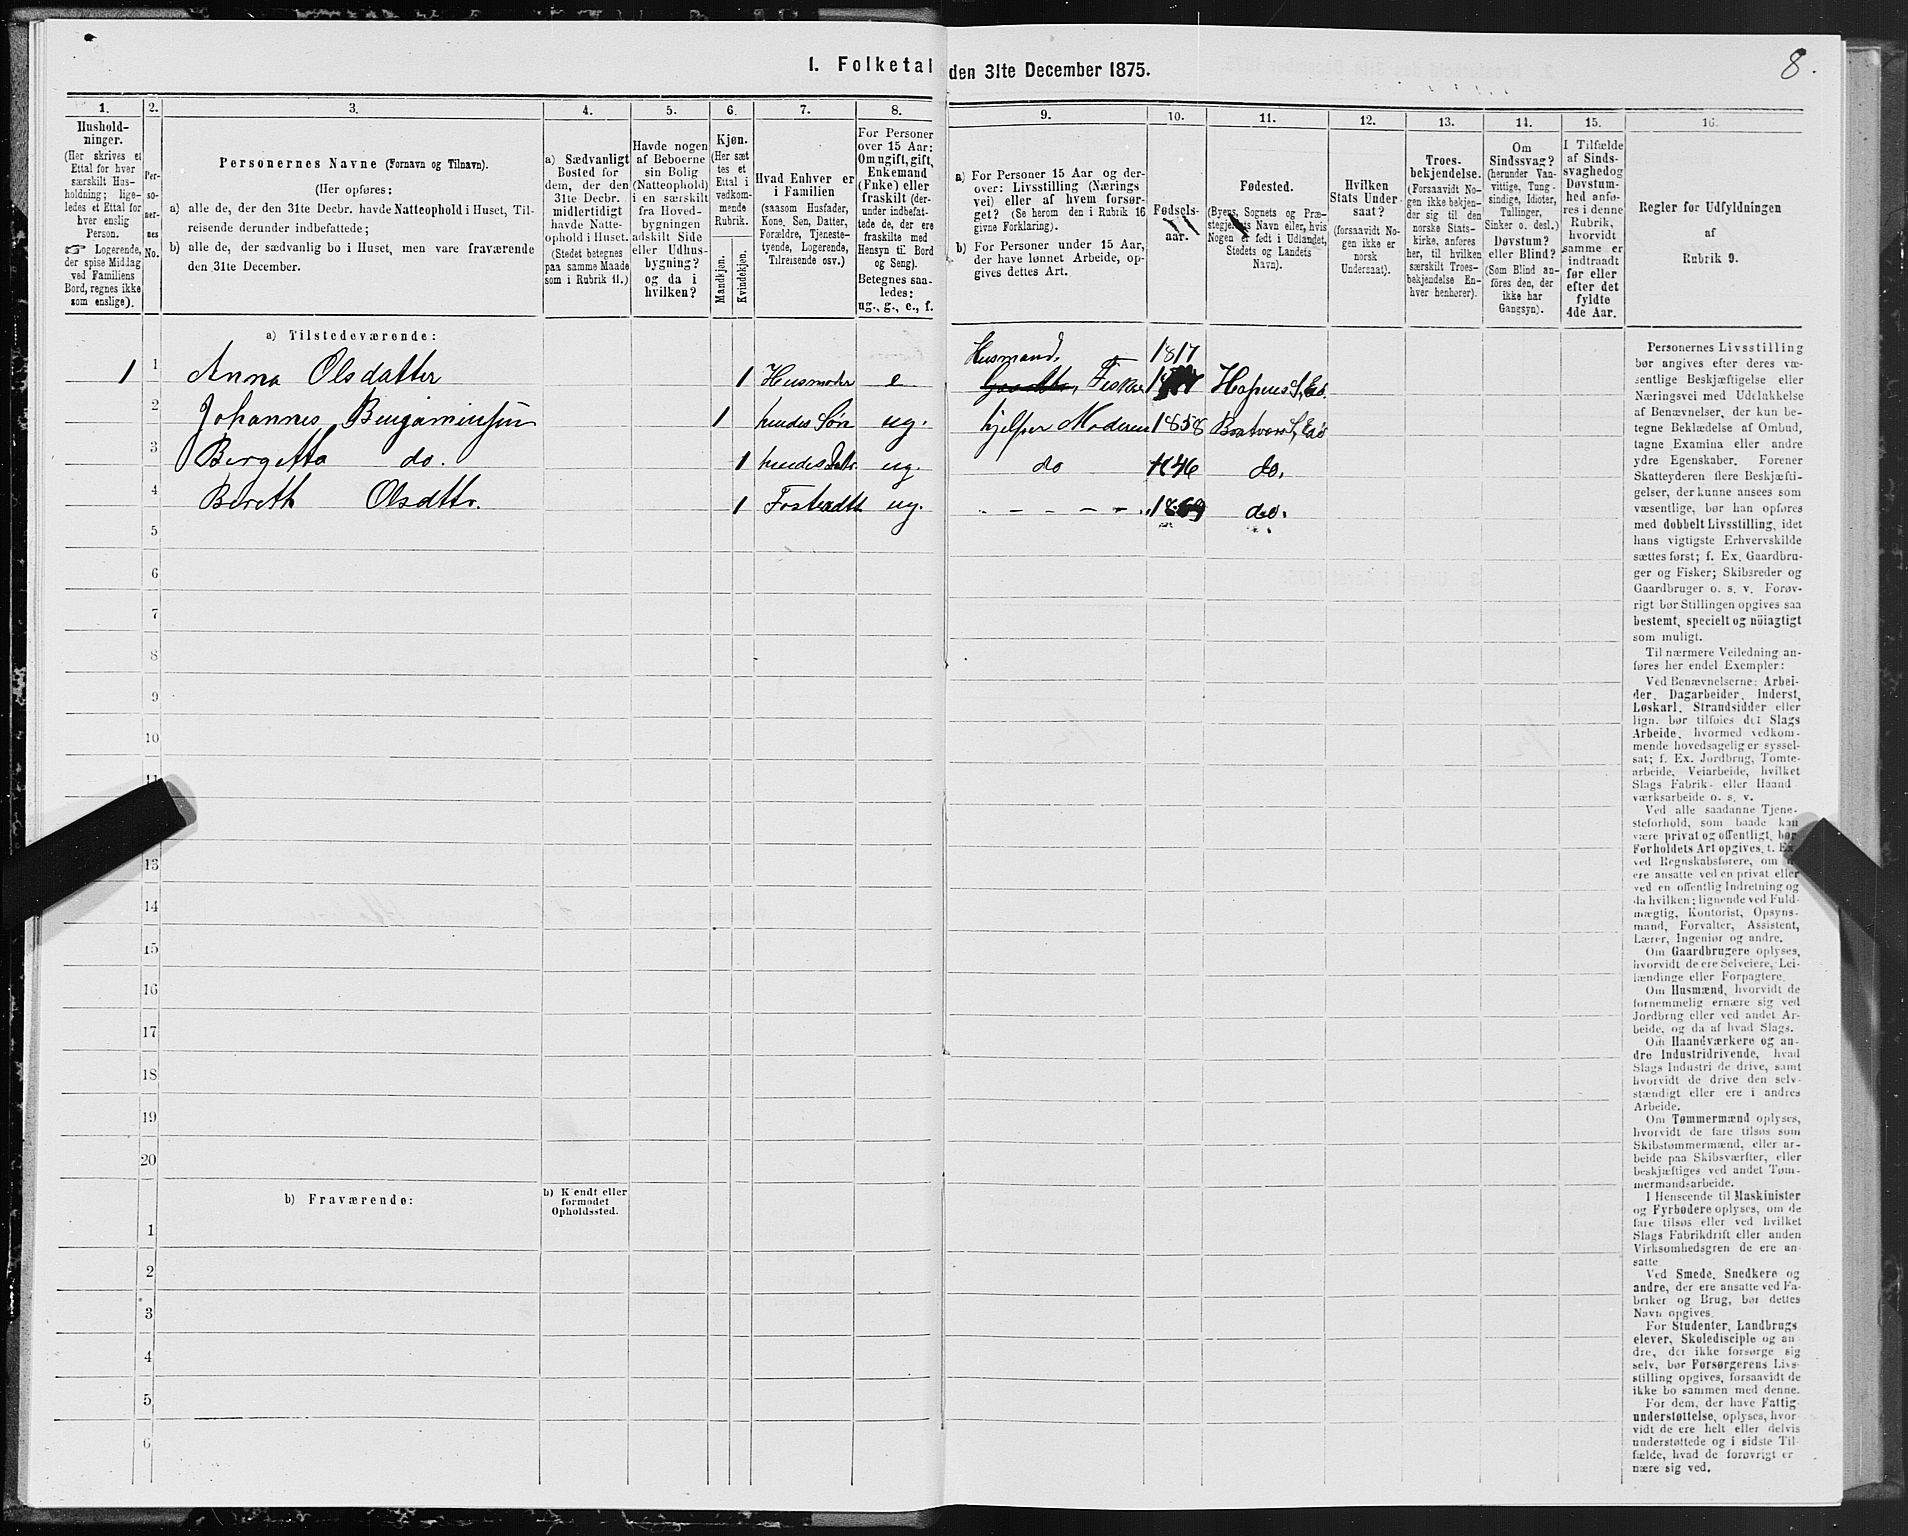 8.
1. Folketal den 31te December 1875.
1. 2. 3. 4. 5. 6. 7. 8. 9. 10. 11. 12. 13. 14. 15. 16.
Hushold-
ninger.
(Her skrives et
Ettal for hver
særskilt Hus-
holdning; lige-
ledes et Ettal for
hver enslig
Person.
☞ Logerende,
der spise Middag
ved Familiens
Bord, regnes ikke
som enslige).
Per-
so-
ner-
nes
No.
Personernes Navne (Fornavn og Tilnavn).
(Her opføres:
a) alle de, der den 31te Decbr. havde Natteophold i Huset, Til-
reisende derunder indbefattede;
b) alle de, der sædvanlig bo i Huset, men vare fraværende
den 31te December.
a) Sædvanligt
Bosted for
dem, der den
31te Decbr.
midlertidigt
havde Natte-
ophold i Huset.
(Stedet betegnes
paa samme Maade
som i Rubrik 11.)
Havde nogen
af Beboerne
sin Bolig
(Natteophold)
i en særskilt
fra Hoved-
bygningen
adskilt Side
eller Udhus-
bygning?
og da i
hvilken?
Kjøn.
(Her sæt
tes et
Ettal i
vedkom-
mende
Rubrik.
Mandkjøn.
Kvindekjøn.
Hvad Enhver er
i Familien
(saasom Husfader,
Kone, Søn, Datter,
Forældre, Tjeneste-
tyende, Logerende,
Tilreisende osv.)
For Personer
over 15 Aar:
Om ugift, gift,
Enkemand
(Enke) eller
fraskilt (der-
under indbefat-
tede de, der ere
fraskilte med
Hensyn til Bord
og Seng).
Betegnes saa-
ledes:
ug., g., e., f.
a) For Personer 15 Aar og der-
over: Livsstilling (Nærings
vei) eller af hvem forsør-
get? (Se herom den i Rubrik 16
givne Forklaring).
b) For Personer under 15 Aar,
der have lønnet Arbeide, op-
gives dettes Art.
Fødsels-
aar.
Fødested.
(Byens, Sognets og Præ-
stegjeldets Navn eller, hvis
Nogen er født i Udlandet,
Stedets og Landets
Navn).
Hvilken
Stats Under
saat?
(forsaavidt No-
gen ikke er
norsk
Undersaat).
Troes-
bekjendelse.
(Forsaavidt No-
gen ikke bekjen-
der sig til den
norske Stats-
kirke, anføres
her, til hvilken
særskilt Troes-
bekjendelse En-
hver henhører).
Om
Sindssvag?
(herunder Van-
vittige, Tung-
sindige, Idioter,
Tullinger,
Sinker o. desl.)
Døvstum?
eller Blind?
(Som Blind an-
føres den, der
ikke har
Gangsyn).
I Tilfælde
af Sinds-
svaghed og
Døvstum-
hed anfø-
res i denne
Rubrik,
hvorvidt
samme er
indtraadt
før eller
efter det
fyldte
4de Aar.
Regler for Udfyldningen
af
Rubrik 9.
a) Tilstedeværende:
Husmand, 1817
1 1 Anna Olsdatter 1 Husmoder e Fisker
2 Johannes Benjaminsen 1 hendes Søn ug. hjelper Moderen 1858
3 Bergetta do. 1 hendes Dattr ug. do 1846 do.
4 Bereth Olsdttr. 1 Fosterdtt ug. - - - - - 1869 do.
5
6
7
8
9
10
11
13
14
15
16
17
18
19
20
b) Fraværende:
b) Kjendt eller
formodet
Opholdssted.
1
2
3
4
5
6
Personernes Livsstilling
bør angives efter deres væ-
sentlige Beskjæftigelse eller
Næringsvei med Udelukkelse
af Benævnelser, der kun be-
tegne Beklædelse af Ombud,
tagne Examina eller andre
ydre Egenskaber. Forener
Skatteyderen flere Beskjæfti-
gelser, der kunne ansees som
væsentlige, bør han opføres
med dobbelt Livsstilling, idet
hans vigtigste Erhvervskilde
sættes først; f. Ex. Gaardbru-
ger og Fisker; Skibsreder og
Gaardbruger o. s. v. Forøv-
rigt bør Stillingen opgives saa
bestemt, specielt og nöiagtigt
som muligt.
Til nærmere Veiledning an-
føres her endel Exempler:
Ved Benævnelserne: Arbei-
der, Dagarbeider, Inderst,
Løskarl, Strandsidder eller
lign. bør tilføies det Slags
Arbeide, hvormed vedkom-
mende hovedsagelig er syssel-
sat; f. Ex. Jordbrug, Tomte-
arbeide, Veiarbeide, hvilket
Slags Fabrik- eller Haand
værksarbeide o. s. v.
Ved alle saadanne Tjene-
steforhold, som baade kan
være privat og offentligt, bør
Forholdets Art opgives, f. Ex.
ved Regnskabsførere, om
ere ansatte ved en privat eller
ved en offentlig Indretning og
da hvilken; lignende ved Fuld-
mægtig, Kontorist, Opsyns-
mand, Forvalter, Assistent,
Lærer, Ingeniør og andre.
Om Gaardbrugere oplyses,
hvorvidt de ere Selveiere, Lei-
lændinge eller Forpagtere.
Om Husmænd, hvorvidt de
fornemmelig ernære sig ved
Jordbrug eller ved andet Ar-
beide, og da af hvad Slags.
Om Haandværkere og an-
dre Industridrivende, hvad
Slags Industri de drive, samt
hvorvidt de drive den selv-
stændigt eller ere i andres
Arbeide.
Om Tømmermænd oplyses,
hvorvidt de fare tilsøs som
Skibstømmermænd, eller ar-
beide paa Skibsværfter, eller
beskjæftiges ved andet Tøm-
mermandsarbeide.
I Henseende til Maskinister
og Fyrbødere oplyses, om de
fare tilsøs eller ved hvilket
Slags Fabrikdrift eller anden
Virksomhedsgren de ere an-
satte.
Ved Smede, Snedkere og
andre, der ere ansatte ved Fa-
briker og Brug, bør dettes
Navn opgives.
For Studenter, Landbrugs
elever, Skoledisciple og an
dre, der ikke forsørge sig
selv, bør Forsørgerens Livs-
stilling opgives, forsaavidt de
ikke bo sammen med denne.
For dem, der have Fattig
understøttelse, oplyses, hvor-
vidt de ere helt eller delvis
understøttede og i sidste Til-
fælde, hvad de forøvrigt er
nære sig ved.